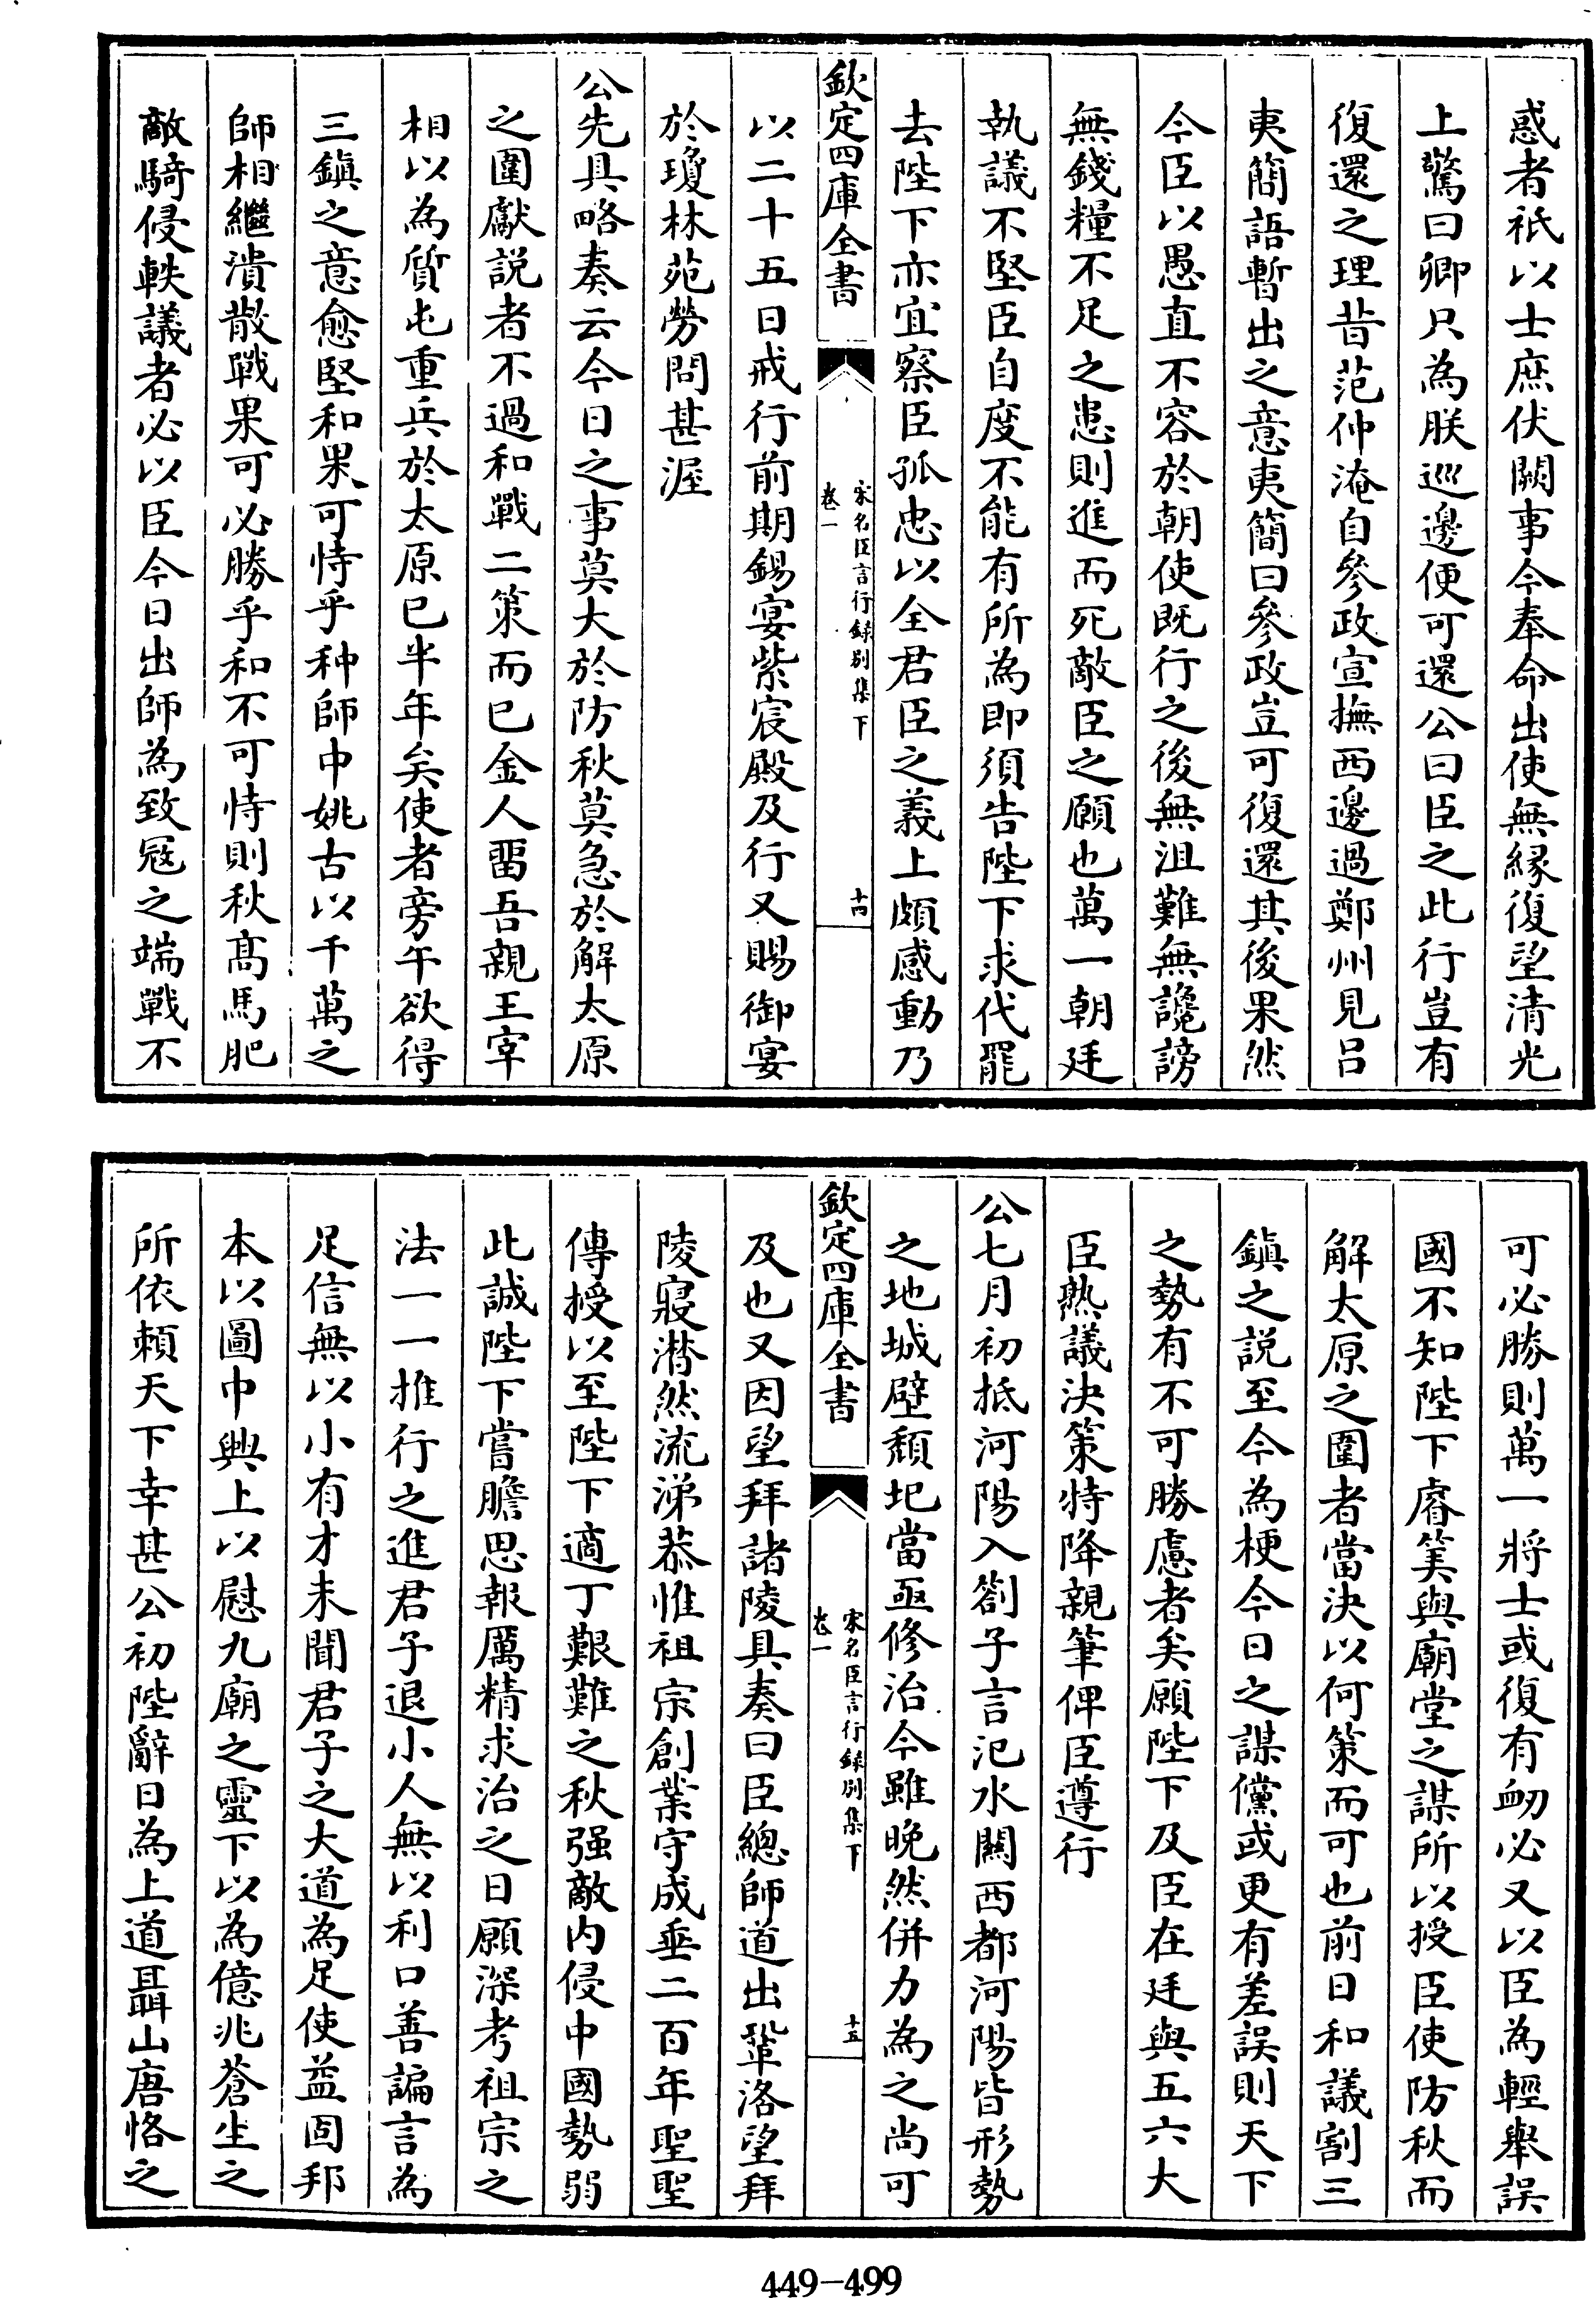 惑者祇以士庶伏闕事今奉命出使無縁復望清光
上驚曰卿只為朕巡邊便可還公曰臣之此行豈有
復還之理昔范仲淹自參政宣撫西邊過鄭州見呂
夷簡語暫出之意夷簡曰參政豈可復還其後果然
今臣以愚直不容於朝使既行之後無沮難無讒謗
無錢糧不足之患則進而死敵臣之願也萬一朝廷
執議不堅臣自度不能有所為即須告陛下求代罷
去陛下亦宜察臣孤忠以全君臣之義上頗感動乃
欽定四庫全書
宋名臣言行錄別集下
卷一
十四
以二十五日戒行前期錫宴紫宸殿及行又賜御宴
於瓊林苑勞問甚渥
公先具略奏云今日之事莫大於防秋莫急於解太原
之圍獻説者不過和戰二策而已金人畱吾親王宰
相以為質屯重兵於太原已半年矣使者旁午欲得
三鎮之意愈堅和果可恃乎种師中姚古以千萬之
師相繼潰散戰果可必勝乎和不可恃則秋髙馬肥
敵騎侵軼議者必以臣今日出師為致冦之端戰不
可必勝則萬一將士或復有衂必又以臣為輕舉誤
國不知陛下睿筭與廟堂之謀所以授臣使防秋而
解太原之圍者當決以何策而可也前日和議割三
鎮之説至今為梗今日之謀儻或更有差誤則天下
之勢有不可勝慮者矣願陛下及臣在廷與五六大
臣熟議決策特降親筆俾臣遵行
公七月初抵河陽入劄子言汜水關西都河陽皆形勢
之地城壁頽圮當亟修治今雖晩然併力為之尚可
欽定四庫全書
宋名臣言行錄別集下
卷一
十五
及也又因望拜諸陵具奏曰臣總師道出鞏洛望拜
陵寢潸然流涕恭惟祖宗創業守成垂二百年聖聖
傳授以至陛下適丁艱難之秋强敵内侵中國勢弱
此誠陛下嘗膽思報厲精求治之日願深考祖宗之
法一一推行之進君子退小人無以利口善諞言為
足信無以小有才未聞君子之大道為足使益固邦
本以圖中興上以慰九廟之靈下以為億兆蒼生之
所依頼天下幸甚公初陛辭日為上道聶山唐恪之
449-499